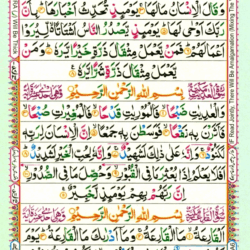 قَالَ الْاِنْسَانُ مَا لَهَا يَوْمَئِذٍ تُحَدِّثُ اَخْبَارَهَا بِاَنَّ
رَبَّكَ اَوْحٰى لَهَا يَوْمَئِذٍ يَّصْدُرُ النَّاسُ اَشْتَاتًا لِّيُرَوْا
اَعْمَالَهُمْ فَمَنْ يَّعْمَلْ مِثْقَالَ ذَرَّةٍ خَيْرًا يَّرَهٗ وَمَنْ
يَّعْمَلْ مِثْقَالَ ذَرَّةٍ شَرًّا يَّرَهٗ
بِسْمِ اللّٰهِ الرَّحْمٰنِ الرَّحِيْمِ
وَالْعٰدِيٰتِ ضَبْحًا فَالْمُوْرِيٰتِ قَدْحًا فَالْمُغِيْرٰتِ صُبْحًا
فَاَثَرْنَ بِهٖ نَقْعًا فَوَسَطْنَ بِهٖ جَمْعًا اِنَّ الْاِنْسَانَ لِرَبِّهٖ
لَكَنُوْدٌ وَاِنَّهٗ عَلٰى ذٰلِكَ لَشَهِيْدٌ وَاِنَّهٗ لِحُبِّ الْخَيْرِ لَشَدِيْدٌ
اَفَلَا يَعْلَمُ اِذَا بُعْثِرَ مَا فِى الْقُبُوْرِ وَحُصِّلَ مَا فِى الصُّدُوْرِ
اِنَّ رَبَّهُمْ بِهِمْ يَوْمَئِذٍ لَّخَبِيْرٌ
بِسْمِ اللّٰهِ الرَّحْمٰنِ الرَّحِيْمِ
اَلْقَارِعَةُ مَا الْقَارِعَةُ وَمَا اَدْرٰىكَ مَا الْقَارِعَةُ يَوْمَ
IF Read Jointly, There Will Be Amalgamation (Mixing The